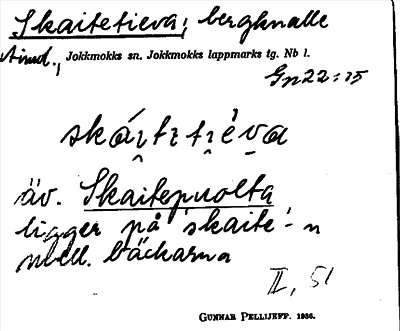 Skaitetieva; bergknalle
Jokkmokks sn. Jokkmokks lappmarks tg. Nb l.
Gn 22:15
skáᵢtɪtɪèva
äv. Skaitepuolta
ligger på 'skaite'-n
mell. bäckarna
II, 51
GUNNAR PELLIJEFF. 1936.